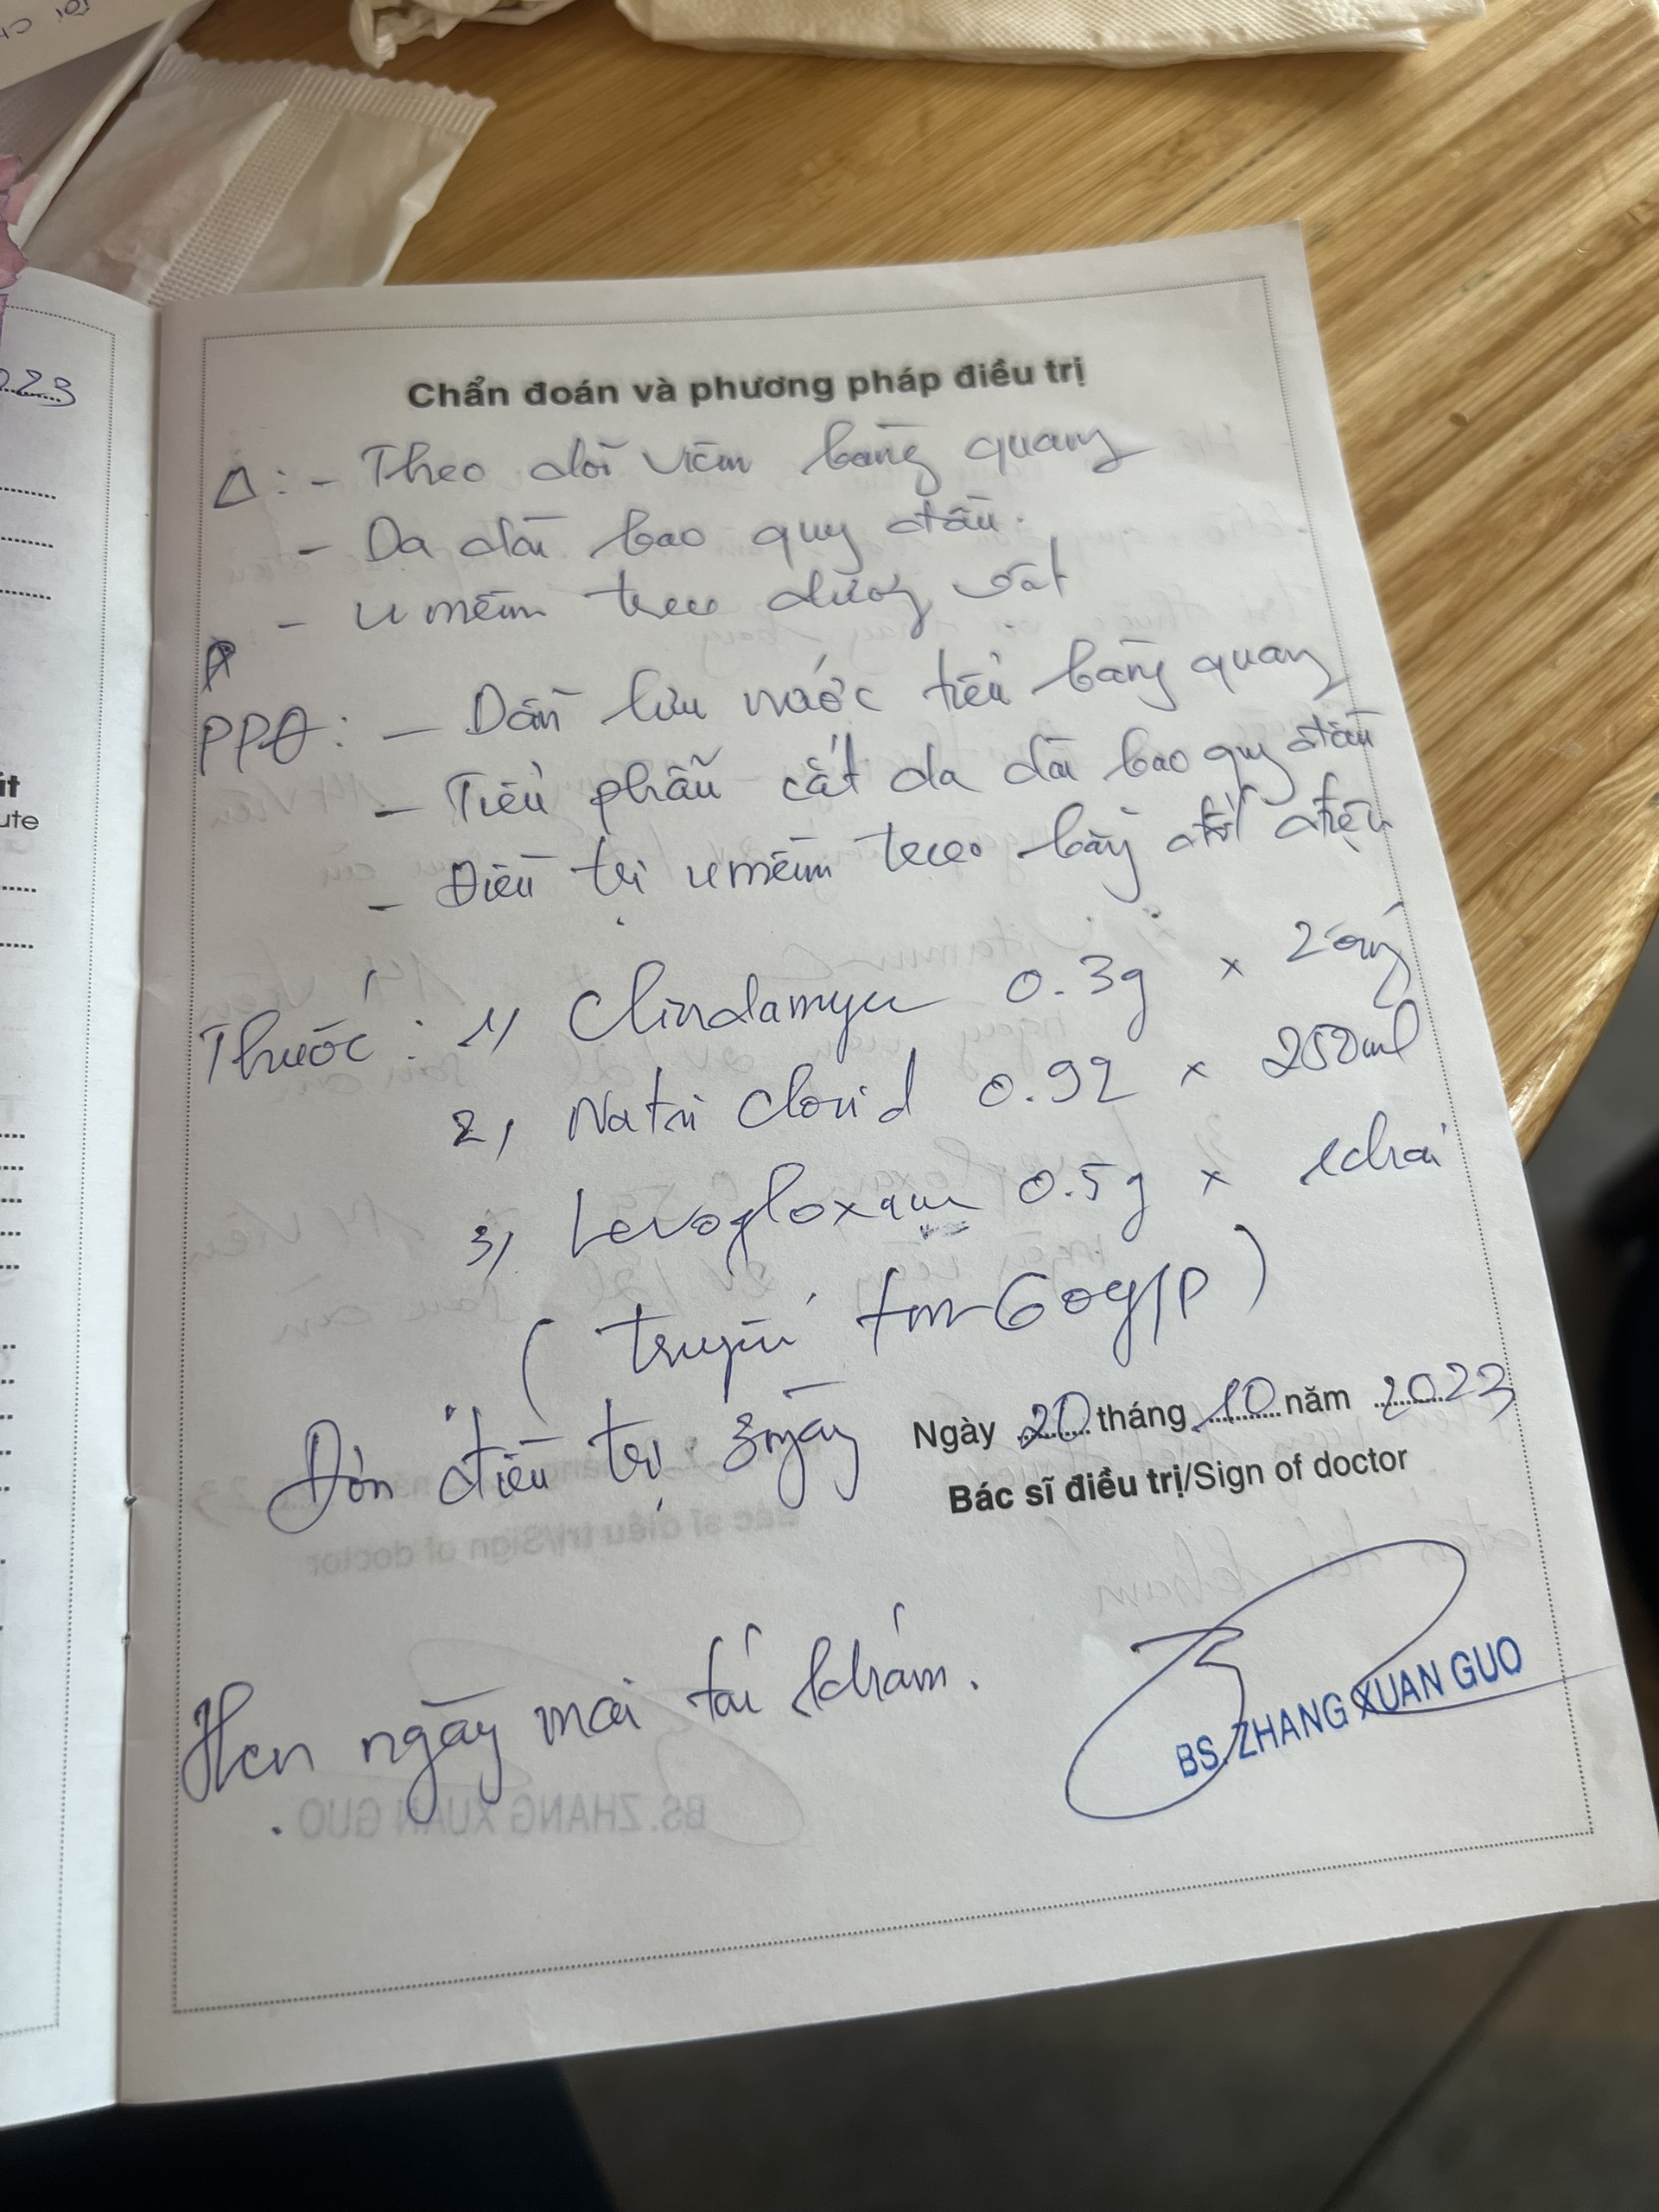 Chẩn đoán và phương pháp điều trị
Δ: - Theo dõi viêm bàng quang
- Da dài bao quy đầu.
- U mềm treo dương vật
PPĐ: - Dẫn lưu nước tiểu bàng quang
- Tiểu phẫu cắt da dài bao quy đầu
- Điều trị u mềm treo bằng đốt điện
Thuốc: 1) Clindamycin 0.3g x 2 ống
2, Natri Clorid 0.92 x 250ml
3, Levofloxacin 0.5g x 1chai
( truyền tm 60g/p )
Đơn điều trị 3ngày
Ngày 20 tháng 10 năm 2023
Bác sĩ điều trị/Sign of doctor
Hẹn ngày mai tái khám.
BS. ZHANG XUAN GUO
2023
ute